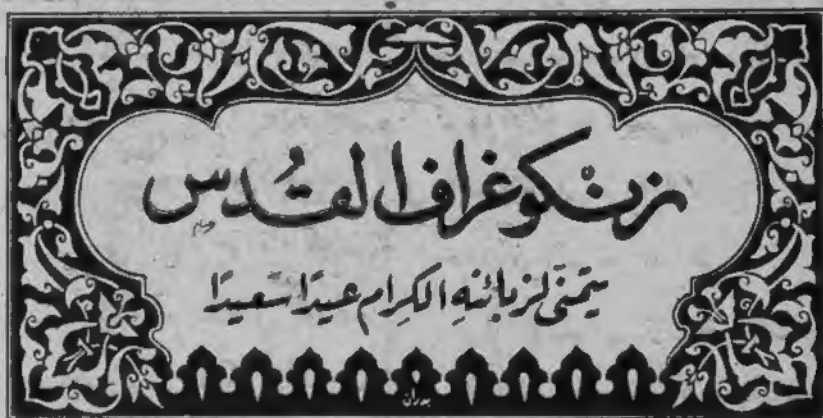 زنكوغراف القُدس
يتمنى لزبائنهِ الكِرام عيدًا سَعيدًا
بدران